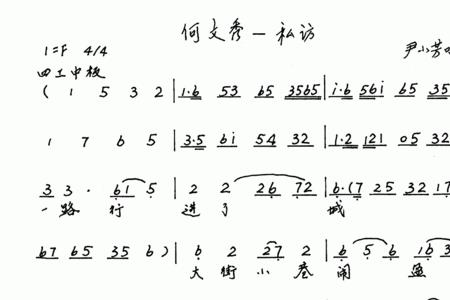 何文秀－私访
1=F 4/4
尹小芳
四工中板
( 1 5 3 2 | 1·6 53 65 3565 | i·6 56i 65 35
1 7 6 5 | 3·5 6i 54 32 | 1·2 121 05 32
3 3· 61 5 | 2 2 26 72 | 6·(7 25 32 17
一路 行 进了 城
67 65 35 6) | 6 2 27 2 | 6 5 6 16 3
大街小巷 闹 盈